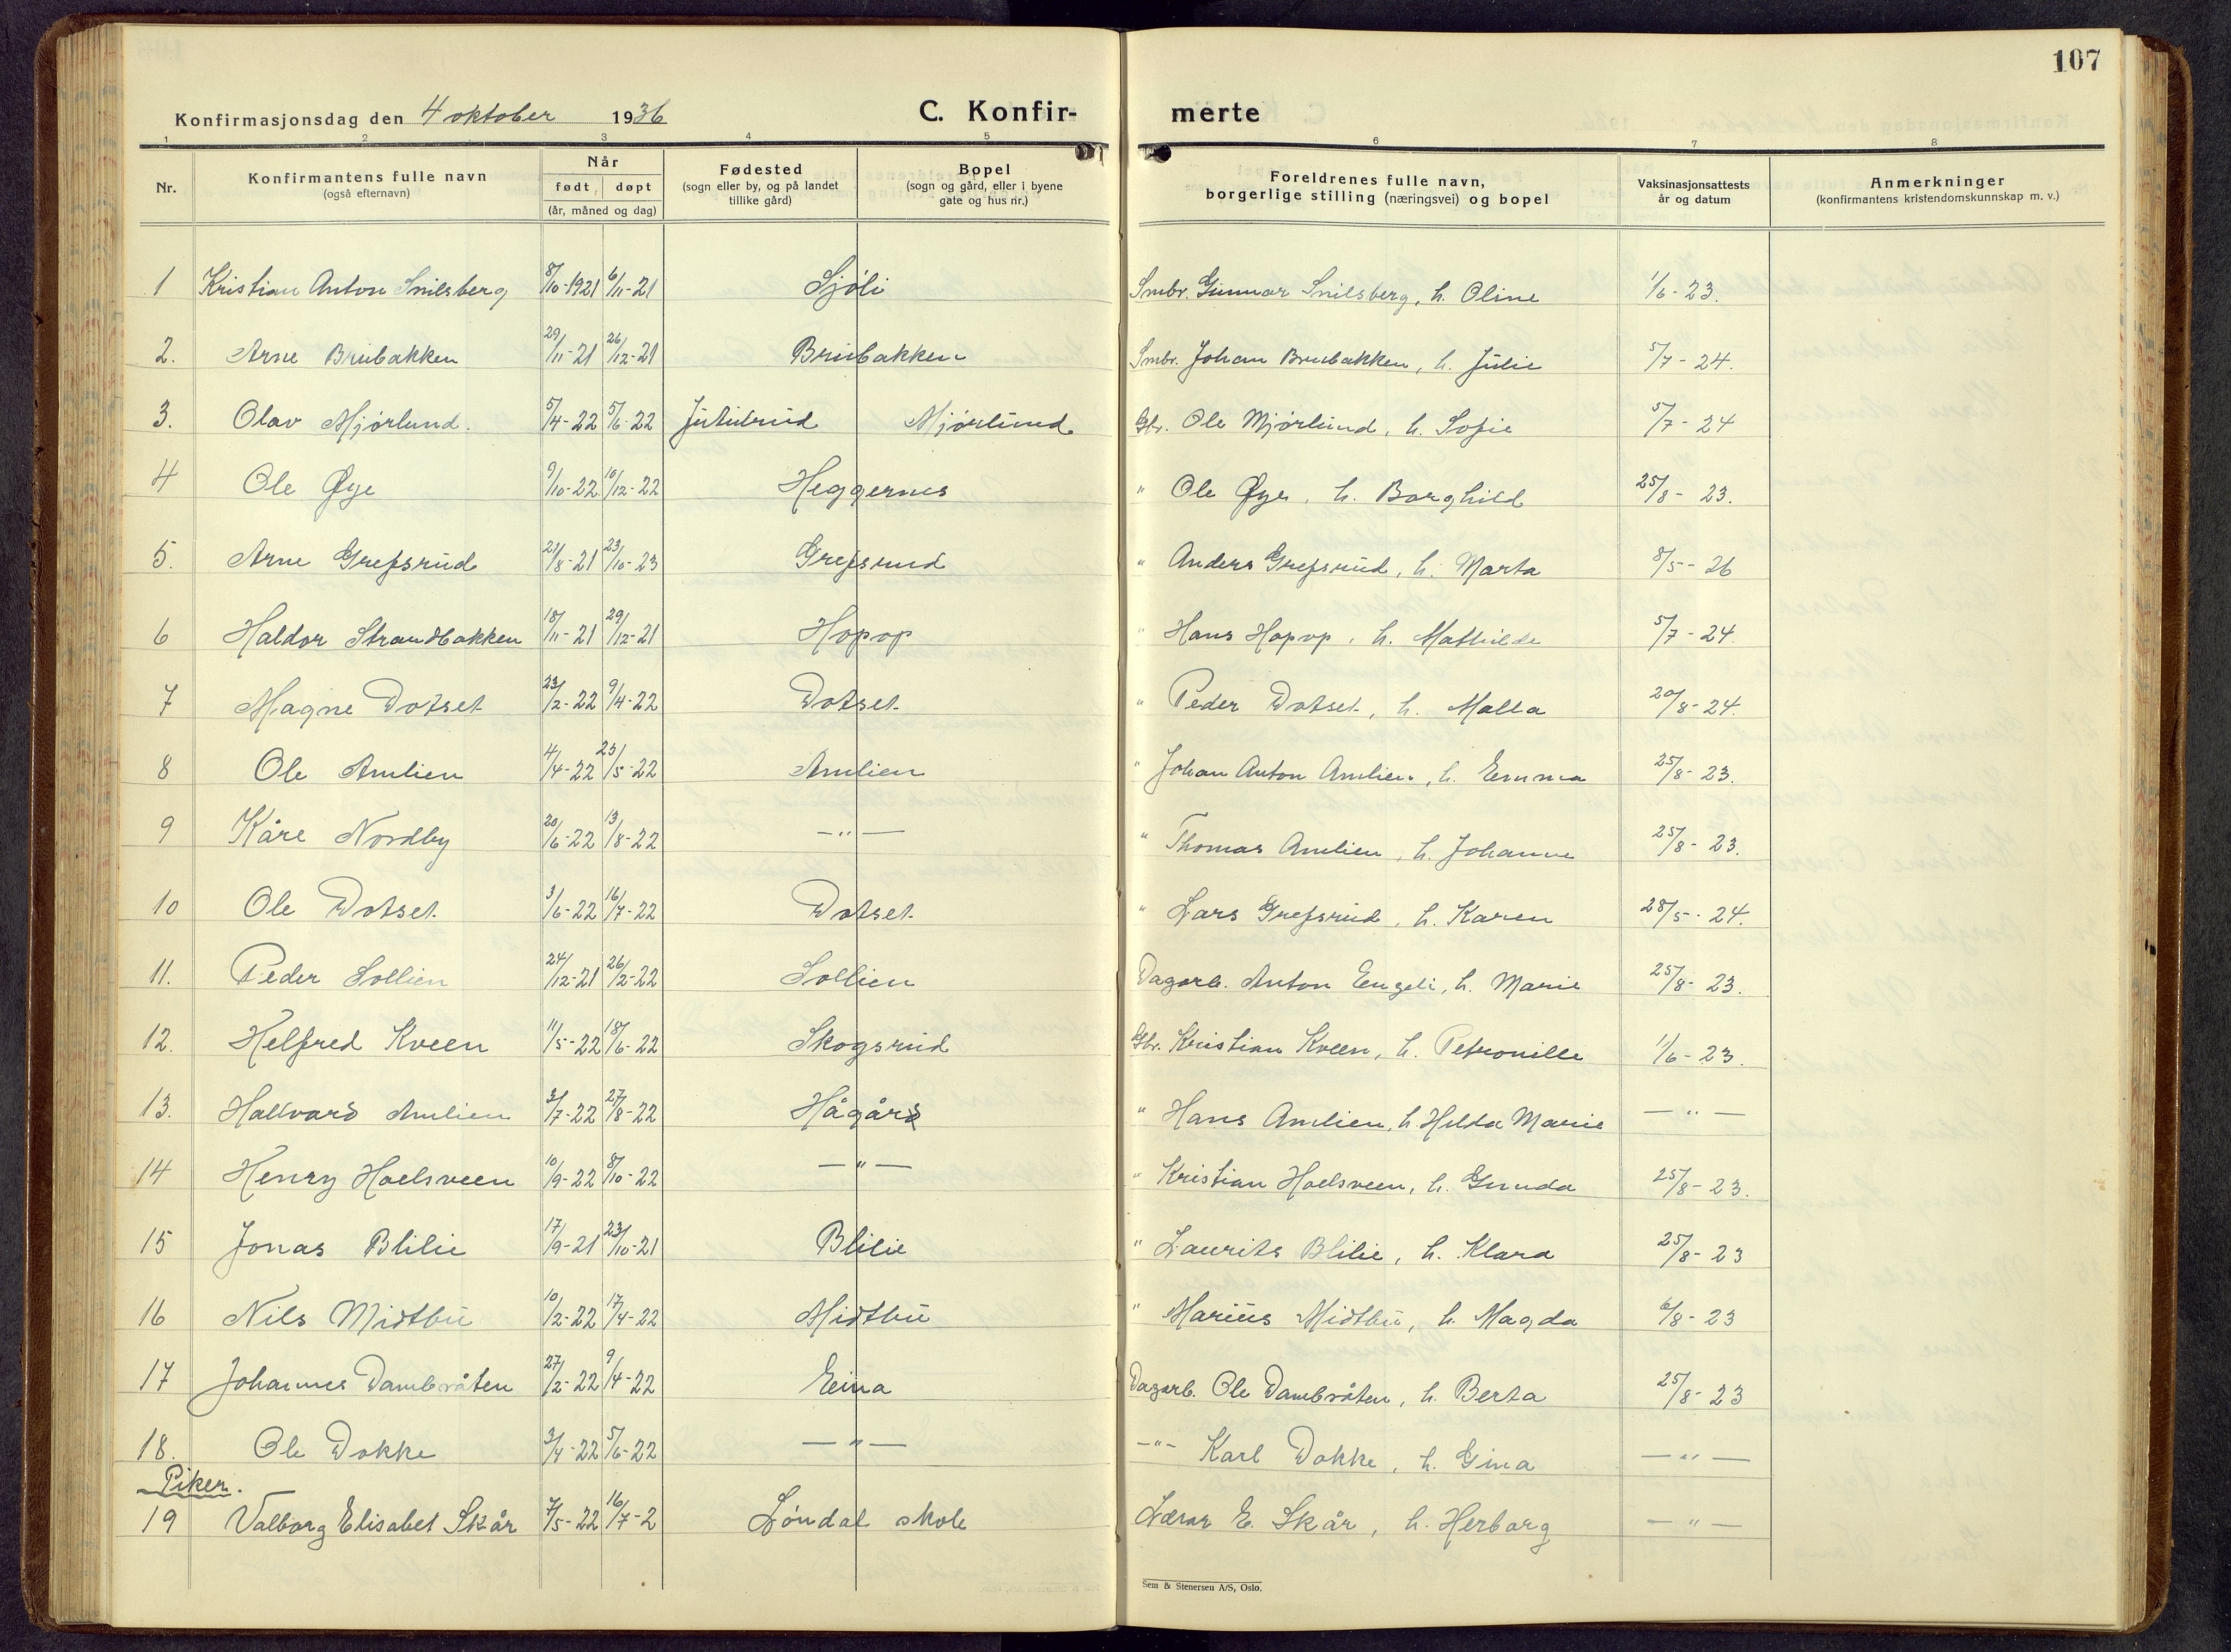 107
Konfirmasjonsdag den 4 oktober 1936 C. Konfir- merte
1 2 3 4 5 6 7 8
Nr. Konfirmantens fulle navn (også efternavn) Når født døpt (år, måned og dag) Fødested (sogn eller by, og på landet tillike gård) Bopel (sogn og gård, eller i byene gate og hus nr.) Foreldrenes fulle navn, borgerlige stilling (næringsvei) og bopel Vaksinasjonsattests år og datum Anmerkninger (konfirmantens kristendomskunnskap m. v.)
1 Kristian Anton Snilsberg 8/10-1921 6/11-21 Sjøli Smbr. Gunnar Snilsberg, h. Oline 1/6-23.
2. Arne Brubakken 29/11-21 26/12-21 Brubakken Smbr. Johan Brubakken, h. Julie 5/7-24.
3. Olav Mjørlund. 5/4-22 5/6-22 Jutulrud Mjørlund Gbr. Ole Mjørlund, h. Sofie 5/7-24
4 Ole Øye 9/10-22 10/12-22 Heggernes " Ole Øye, h. Borghild 25/8-23.
5. Arne Grefsrud 21/8-21 23/10-23 Grefsrud " Anders Grefsrud, h. Marta 8/5-26
6 Haldor Strandbakken 18/11-21 29/12-21 Hopop " Hans Hopop, h. Mathilde 5/7-24.
7 Magne Dotset 23/2-22 9/4-22 Dotset " Peder Dotset, h. Malla 20/8-24.
8 Ole Amlien 4/4-22 25/5-22 Amlien " Johan Anton Amlien, h. Emma 25/8-23.
9 Kåre Nordby 20/6-22 13/8-22 —"— " Thomas Amlien, h. Johanne 25/8-23.
10 Ole Dotset 3/6-22 16/7-22 Dotset " Lars Grefsrud, h. Karen 28/5-24.
11. Peder Sollien 24/12-21 26/2-22 Sollien Dagarb. Anton Engeli, h. Marie 25/8-23.
12. Helfred Kveen 11/5-22 18/6-22 Skogsrud Gbr. Kristian Kveen, h. Petronille 1/6-23.
13. Hallvard Amlien 3/7-22 27/8-22 Hågår " Hans Amlien, h. Hilda Marie —"—
14 Henry Hoelsveen 10/9-22 8/10-22 —"— " Kristian Hoelsveen, h. Gunda 25/8-23.
15 Jonas Blilie 17/9-21 23/10-21 Blilie " Laurits Blilie, h. Klara 25/8-23
16 Nils Midtbu 10/2-22 17/4-22 Midtbu " Marius Midtbu, h. Magda 6/8-23
17 Johannes Dambråten 27/2-22 9/4-22 Eina Dagarb. Ole Dambråten, h. Berta 25/8-23
18. Ole Dokke 3/4-22 5/6-22 —"— -"- Karl Dokke, h. Gina —"—
Piker.
19 Valborg Elisabet Skår 7/5-22 16/7-2 Løndal skole Lærar E. Skår, h. Herborg —"—
Sem & Stenersen A/S, Oslo.